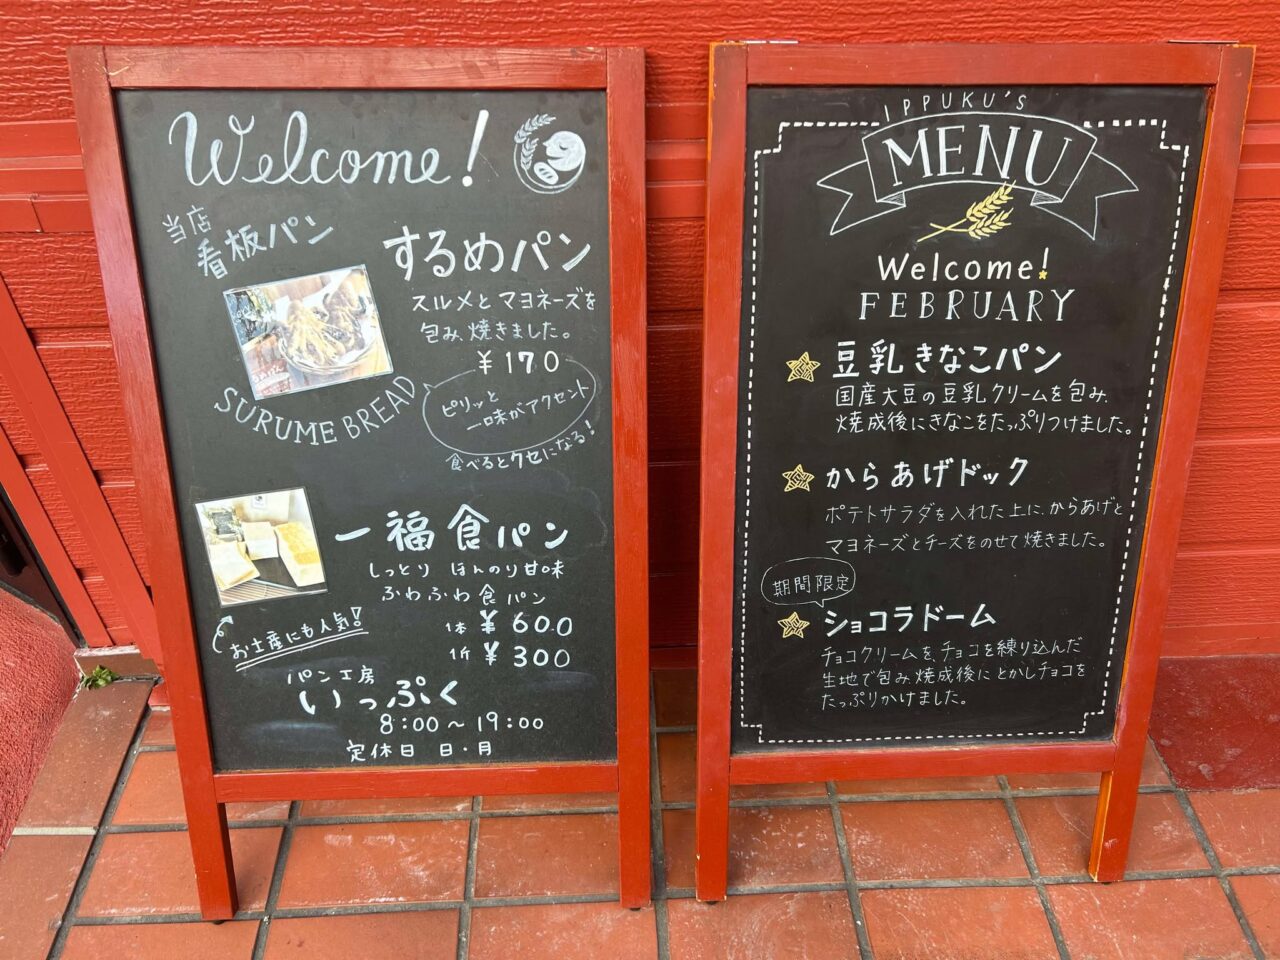 Welcome!
当店
看板パン
するめパン
スルメと マヨネーズを
包み、焼きました。
¥170
SURUME BREAD
ピリッと
一味がアクセント
食べるとクセになる!
一福食パン
しっとり ほんのり甘味
ふわふわ食パン
1本 ¥600
1斤 ¥300
お土産にも人気!
パン工房
いっぷく
8:00～19:00
定休日 日・月
IPPUKU'S
MENU
Welcome!
FEBRUARY
豆乳きなこパン
国産大豆の豆乳クリームを包み、
焼成後にきなこをたっぷりつけました。
からあげドック
ポテトサラダを入れた上に、からあげと
マヨネーズとチーズをのせて焼きました。
期間限定
ショコラドーム
チョコクリームを、チョコを練り込んだ
生地で包み焼成後にとかしチョコを
たっぷりかけました。